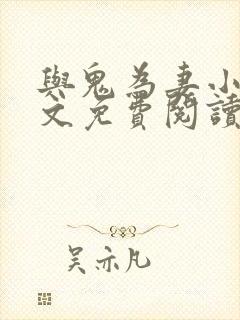 與鬼為妻小
文免費閱讀
吴亦凡